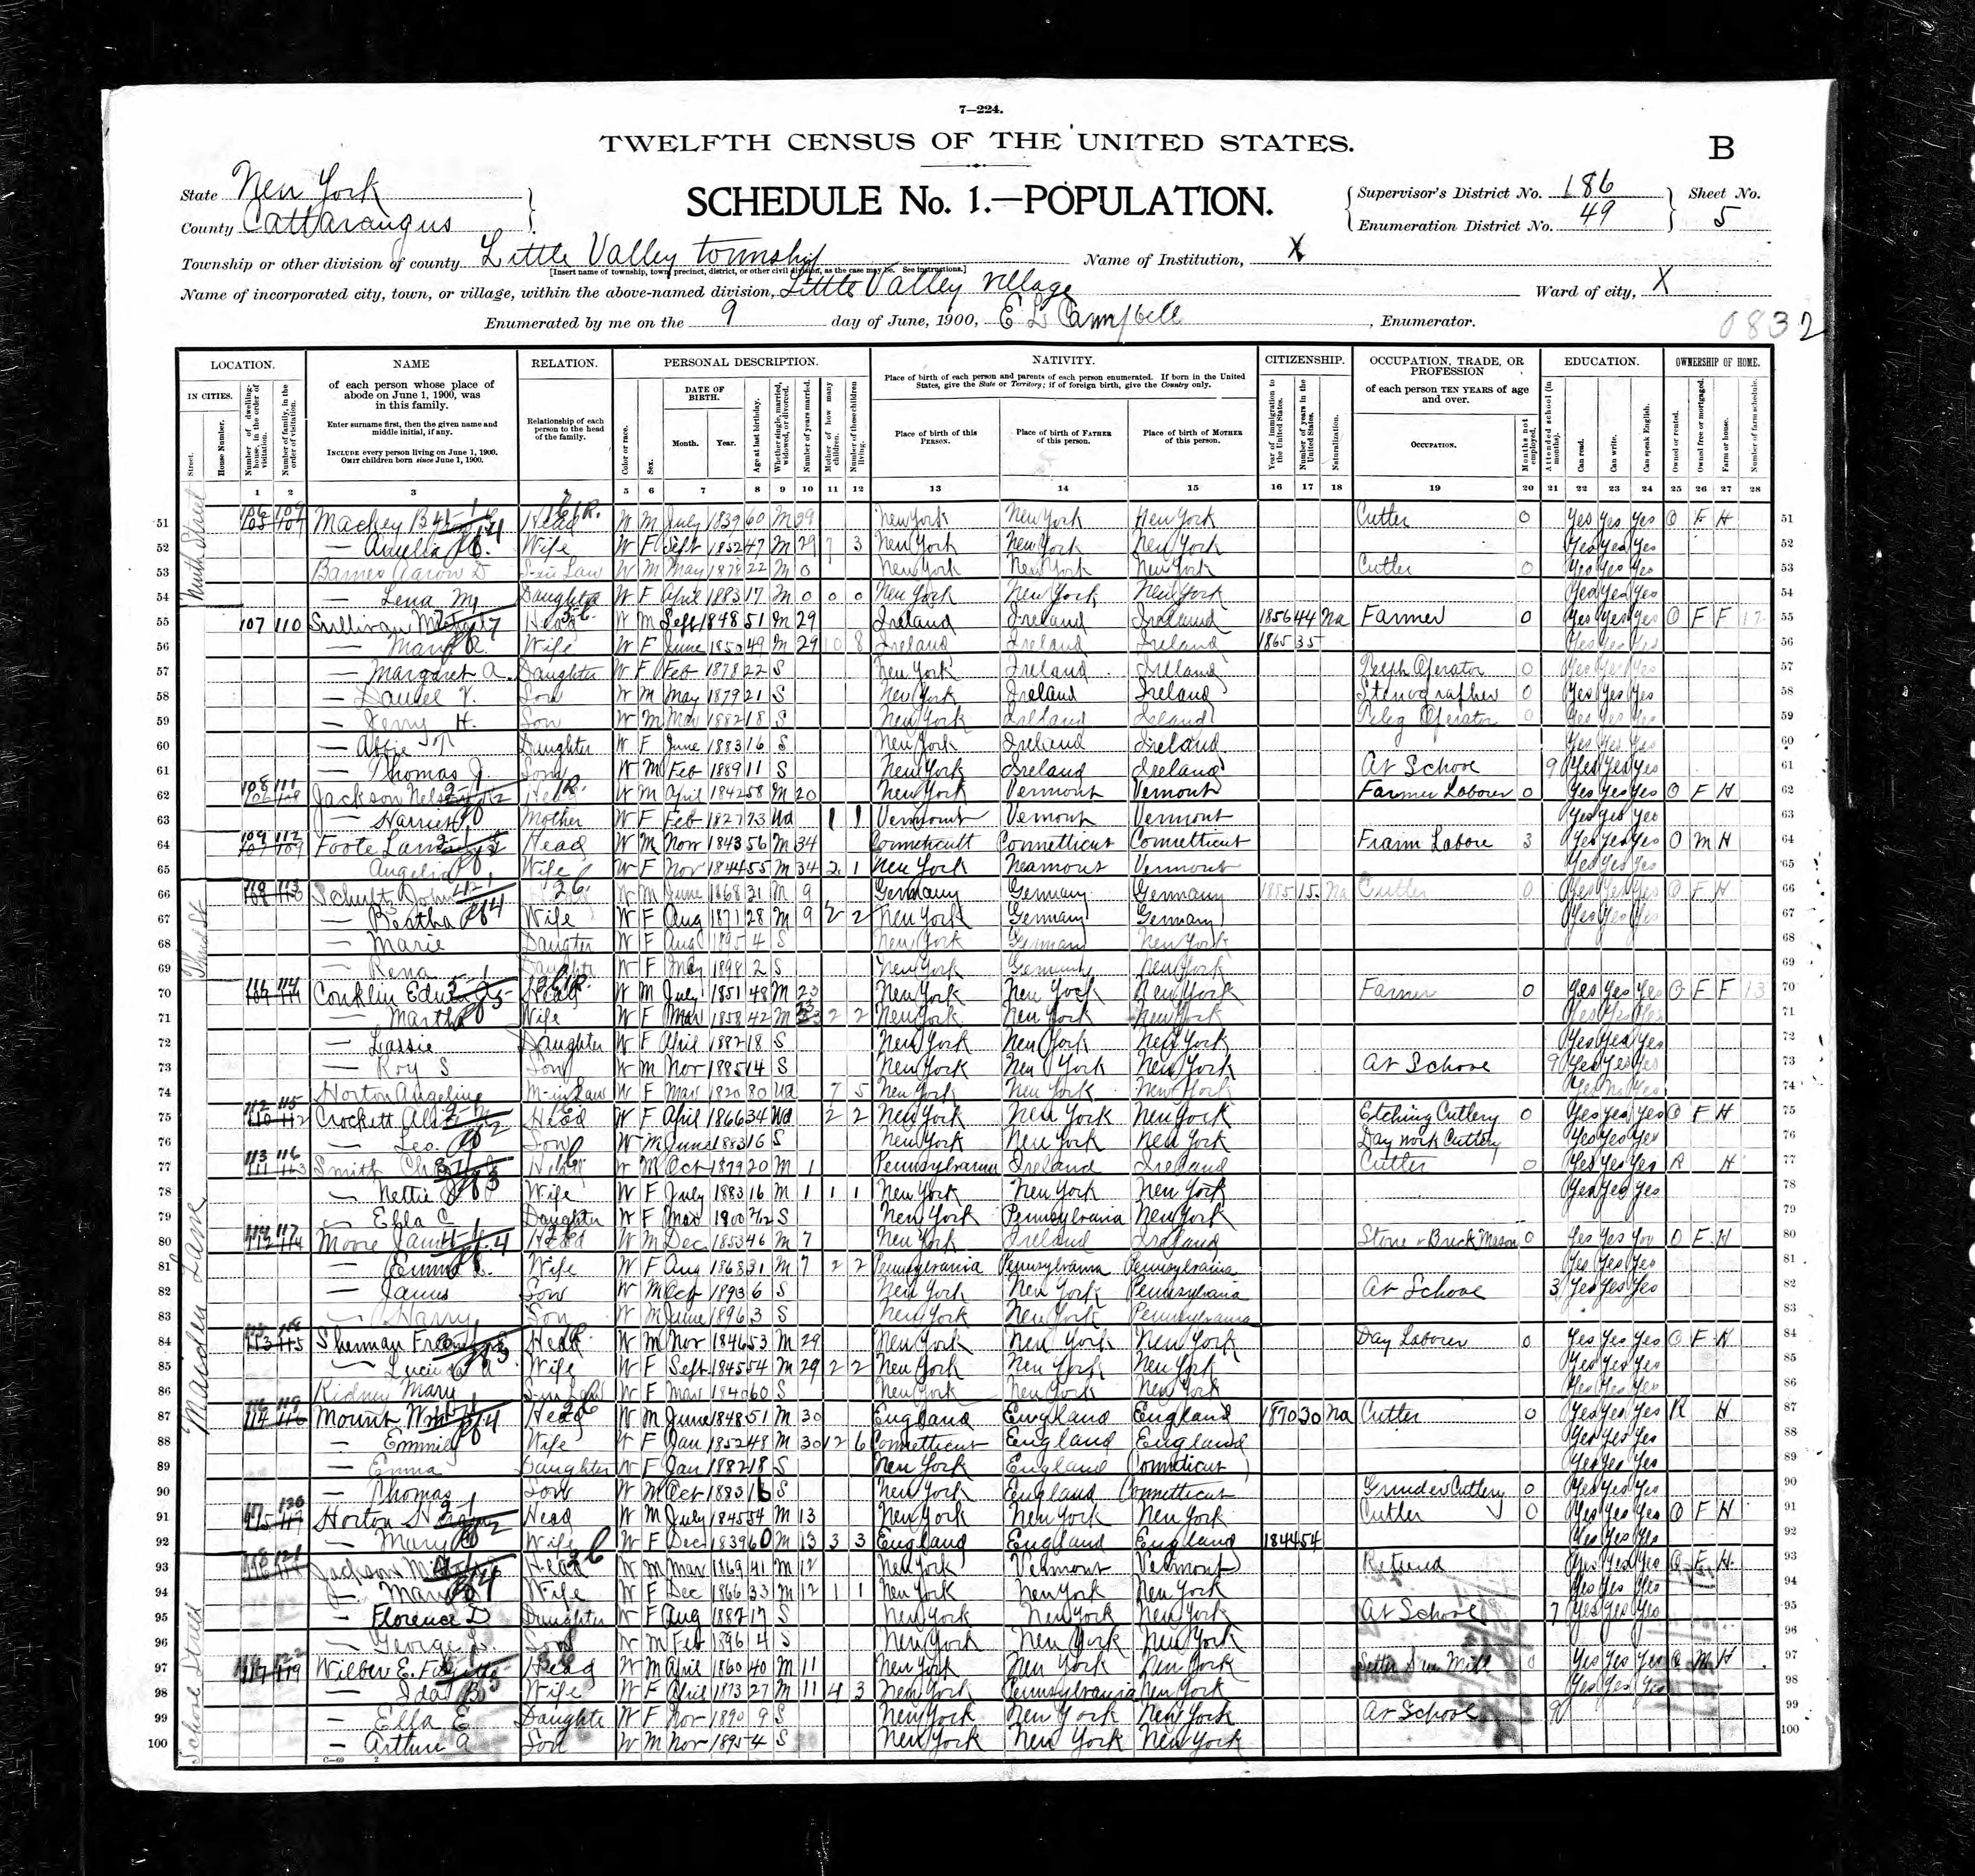 7—224.
TWELFTH CENSUS OF THE UNITED STATES.
B
State New York
County Cattaraugus
SCHEDULE No. 1.—POPULATION.
Supervisor's District No. 186
Enumeration District No. 49
Sheet No. 5
Township or other division of county Little Valley township
[Insert name of township, town, precinct, district, or other civil division, as the case may be. See instructions.]
Name of Institution, X
Name of incorporated city, town, or village, within the above-named division, Little Valley village
Ward of city, X
Enumerated by me on the 9 day of June, 1900, E L Campbell, Enumerator.
0832
LOCATION. NAME RELATION. PERSONAL DESCRIPTION. NATIVITY. CITIZENSHIP. OCCUPATION, TRADE, OR PROFESSION EDUCATION. OWNERSHIP OF HOME.
IN CITIES. Street. House Number. Number of dwelling-house, in the order of visitation. Number of family, in the order of visitation.
of each person whose place of abode on June 1, 1900, was in this family.
Enter surname first, then the given name and middle initial, if any.
INCLUDE every person living on June 1, 1900. OMIT children born since June 1, 1900.
Relationship of each person to the head of the family.
Color or race. Sex. DATE OF BIRTH. Month. Year. Age at last birthday. Whether single, married, widowed, or divorced. Number of years married. Mother of how many children. Number of these children living.
Place of birth of each person and parents of each person enumerated. If born in the United States, give the State or Territory; if of foreign birth, give the Country only.
Place of birth of this PERSON. Place of birth of FATHER of this person. Place of birth of MOTHER of this person.
Year of immigration to the United States. Number of years in the United States. Naturalization.
of each person TEN YEARS of age and over.
OCCUPATION. Months not employed.
Attended school (in months). Can read. Can write. Can speak English.
Owned or rented. Owned free or mortgaged. Farm or house. Number of farm schedule.
1 2 3 5 6 7 8 9 10 11 12 13 14 15 16 17 18 19 20 21 22 23 24 25 26 27 28
51 Mackey Head W M July 1839 60 M 29 New York New York New York Cutter 0 Yes Yes Yes O F H 51
52 — Wife W F Sept 1852 47 M 29 7 3 New York New York New York Yes Yes Yes 52
53 Barnes Aaron D S-in Law W M May 1878 22 M 0 New York New York New York Cutter 0 Yes Yes Yes 53
54 — Lena M Daughter W F April 1883 17 M 0 0 0 New York New York New York Yes Yes Yes 54
55 107 110 Sullivan Head W M Sept 1848 51 M 29 Ireland Ireland Ireland 1856 44 Na Farmer 0 Yes Yes Yes O F F 12 55
56 — Mary A. Wife W F June 1850 49 M 29 10 8 Ireland Ireland Ireland 1865 35 Yes Yes Yes 56
57 — Margaret A. Daughter W F Feb 1878 22 S New York Ireland Ireland Operator 0 Yes Yes Yes 57
58 — Daniel V. Son W M May 1879 21 S New York Ireland Ireland Stenographer 0 Yes Yes Yes 58
59 — Jerry H. Son W M May 1882 18 S New York Ireland Ireland Teleg Operator 0 Yes Yes Yes 59
60 — Abbie Daughter W F June 1883 16 S New York Ireland Ireland Yes Yes Yes 60
61 — Thomas J. Son W M Feb 1889 11 S New York Ireland Ireland At School 9 Yes Yes Yes 61
62 108 111 Jackson Nelson Head W M April 1842 58 M 20 New York Vermont Vermont Farmer Laborer 0 Yes Yes Yes O F H 62
63 — Harriet Mother W F Feb 1827 73 Wd 1 1 Vermont Vermont Vermont Yes Yes Yes 63
64 109 112 Foote Head W M Nov 1843 56 M 34 Connecticutt Connetticut Connetticut Fraim Labore 3 Yes Yes Yes O M H 64
65 Angelia Wife W F Nov 1844 55 M 34 2 1 New York Vermont Yes Yes Yes 65
66 110 113 Schultz John W M June 1868 31 M 9 Germany Germany Germany 1885 15 Na Cutler 0 Yes Yes Yes O F H 66
67 — Bertha Wife W F Aug 1871 28 M 9 2 2 New York Germany Germany Yes Yes Yes 67
68 — Marie Daugter W F Aug 1895 4 S New York German New York 68
69 — Rena Daughter W F May 1898 2 S New York Germany New York 69
70 Conklin Head W M July 1851 48 M 23 New York New York New York Farmer 0 Yes Yes Yes O F F 13 70
71 — Martha Wife W F Mar 1858 42 M 23 2 2 New York New York New York Yes Yes Yes 71
72 — Lassie Daughter W F April 1882 18 S New York New York New York Yes Yes Yes 72
73 — Roy S Son W M Nov 1885 14 S New York New York New York At School 9 Yes Yes Yes 73
74 Horton Angeline M-in Law W F Mar 1820 80 Wd 7 5 New York New York New York Yes No Yes 74
75 112 115 Crockett Head W F April 1866 34 Wd 2 2 New York New York New York Etching Cutlery 0 Yes Yes Yes O F H 75
76 — Leo. Son W M June 1883 16 S New York New York New York Day work Cutlery Yes Yes Yes 76
77 113 116 Smith Head W M Oct 1879 20 M 1 Pennsylvania Ireland Ireland Cutler 0 Yes Yes Yes R H 77
78 — Nettie Wife W F July 1883 16 M 1 1 1 New York New York New York Yes Yes Yes 78
79 — Ella C Daughter W F Mar 1900 2/12 S New York Pennsylvania New York 79
80 114 117 Moore James Head W M Dec 1853 46 M 7 New York Ireland Ireland Stone & Brick Mason 0 Yes Yes Yes O F H 80
81 — Emma Wife W F Aug 1868 31 M 7 2 2 Pennsylvania Pennsylvania Pennsylvania Yes Yes Yes 81
82 — James Son W M Oct 1893 6 S New York New York Pennsylvania At School 3 Yes Yes Yes 82
83 — Harry Son W M June 1896 3 S New York New York Pennsylvania 83
84 115 118 Sherman Head W M Nov 1846 53 M 29 New York New York New York Day Laborer 0 Yes Yes Yes O F H 84
85 — Lucinda A Wife W F Sept 1845 54 M 29 2 2 New York New York New York Yes Yes Yes 85
86 Ridney Mary W F Mar 1840 60 S New York New York New York Yes Yes Yes 86
87 116 119 Mount Wm Head W M June 1848 51 M 30 England England England 1870 30 Na Cutler 0 Yes Yes Yes R H 87
88 — Emmily Wife W F Jan 1852 48 M 30 12 6 Connetticut England England Yes Yes Yes 88
89 — Emma Daughter W F Jan 1882 18 S New York England Conneticut Yes Yes Yes 89
90 — Thomas Son W M Oct 1883 16 S New York England Connetticut Grinder Cutlery 0 Yes Yes Yes 90
91 117 120 Horton Head W M July 1845 54 M 13 New York New York New York Cutler 0 Yes Yes Yes O F H 91
92 — Mary Wife W F Dec 1839 60 M 13 3 3 England England England 1844 54 Yes Yes Yes 92
93 118 121 Jackson Head W M Mar 1869 41 M 12 New York Vermont Vermont Retired Yes Yes Yes O F H 93
94 — Mary Wife W F Dec 1866 33 M 12 1 1 New York New York New York Yes Yes Yes 94
95 — Florence D Daughter W F Aug 1882 17 S New York New York New York At School 7 Yes Yes Yes 95
96 — George L. Son W M Feb 1896 4 S New York New York New York 96
97 Wilber E. Head W M April 1860 40 M 11 New York New York New York Setter Mill 0 Yes Yes Yes O M H 97
98 — Ida B Wife W F April 1873 27 M 11 4 3 New York Pennsylvania New York Yes Yes Yes 98
99 — Ella E Daughter W F Nov 1890 9 S New York New York New York At School 9 99
100 — Arthur A Son W M Nov 1895 4 S New York New York New York 100
Ninth Street
Third St
Marsden Lane
School Street